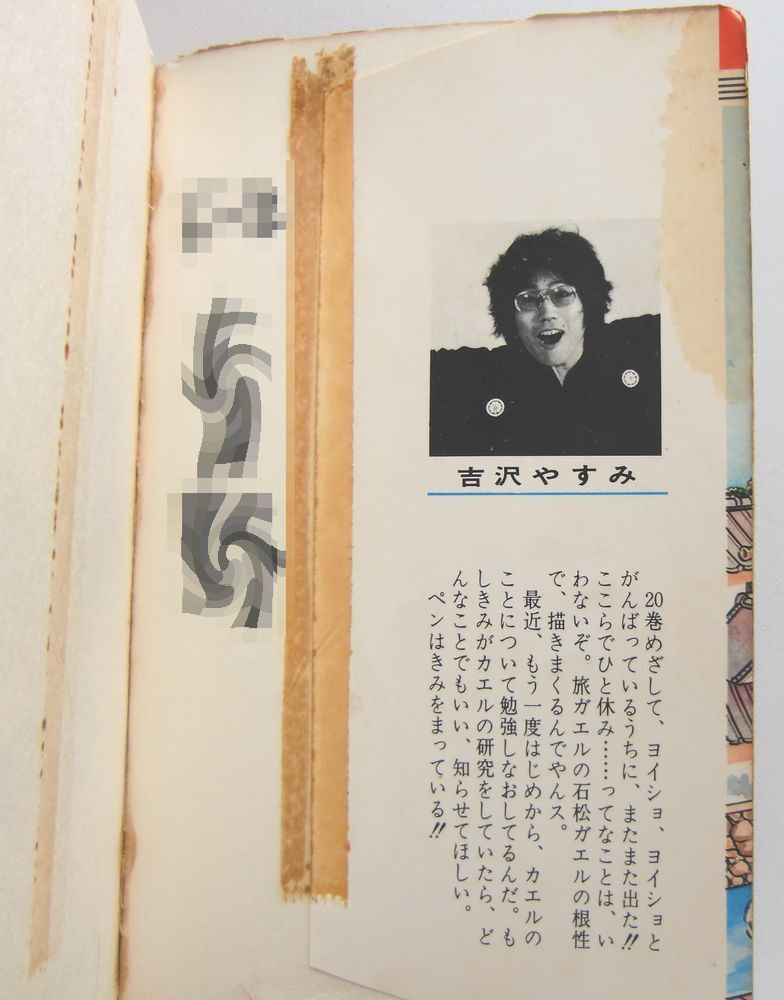 吉沢やすみ
20巻めざして、ヨイショ、ヨイショと
がんばっているうちに、またまた出た!!
ここらでひと休み……ってなことは、い
わないぞ。旅ガエルの石松ガエルの根性
で、描きまくるんでやんス。
最近、もう一度はじめから、カエルの
ことについて勉強しなおしてるんだ。も
しきみがカエルの研究をしていたら、ど
んなことでもいい、知らせてほしい。
ペンはきみをまっている!!